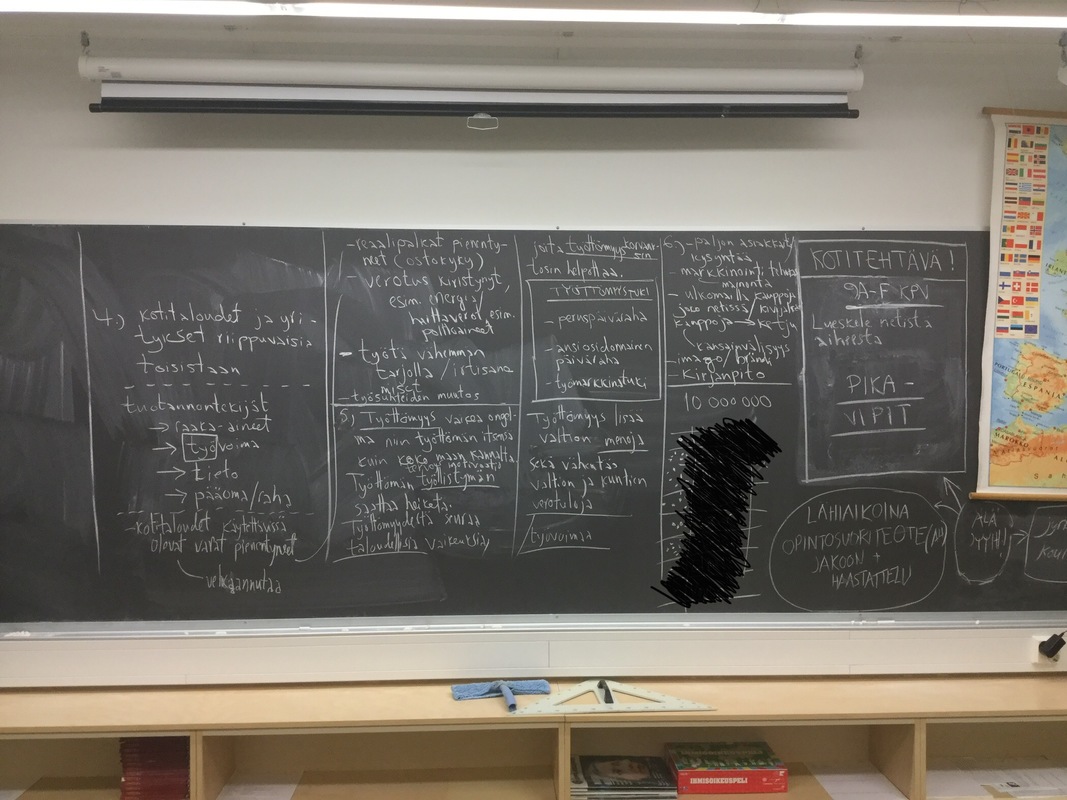 4.) kotitaloudet ja yri-
tykset riippuvaisia
toisistaan
tuotannontekijät
→ raaka-aineet
→ työvoima
→ tieto
→ pääoma/raha
-kotitaloudet käytettävissä
olevat varat pienentyneet
velkaannutaa
-reaalipalkat pienenty-
neet (ostokyky)
- verotus kiristynyt,
esim. energia/
haittaverot, esim.
polttoaineet
- työtä vähemmän
tarjolla / irtisano
miset
-työsuhteiden muutos
5.) Työttömyys vaikea ongel-
ma niin työttömän itsensä
kuin koko maan kannalta.
Työttömän työllistymän
saattaa heiketä.
Työttömyydestä seuraa
taloudellisia vaikeuksia,
joita työttömyyskorvauk-
sen
tosin helpottaa.
TYÖTTÖMYYSTUKI
- peruspäiväraha
- ansiosidonnainen
päiväraha
- työmarkkinatuki
Työttömyys lisää
valtion menoja
sekä vähentää
valtion ja kuntien
verotuloja
työvoimaa
6.) - paljon asiakkaita/
kysyntää
- markkinointi,
mainonta
- ulkomailla kauppoja
kauppoja → ketju
kansainvälisyys
- imago/brändi
- Kirjanpito
10 000 000
KOTITEHTÄVÄ!
9A-F KPV
Lueskele netistä
aiheesta
PIKA-
VIPIT
LÄHIAIKOINA
OPINTOSUORITEOTE
JAKOON +
HAASTATTELU
ÄLÄ
PORTUGAL
ESPAÑA
MAROKKO
IHMISOIKEUSPELI